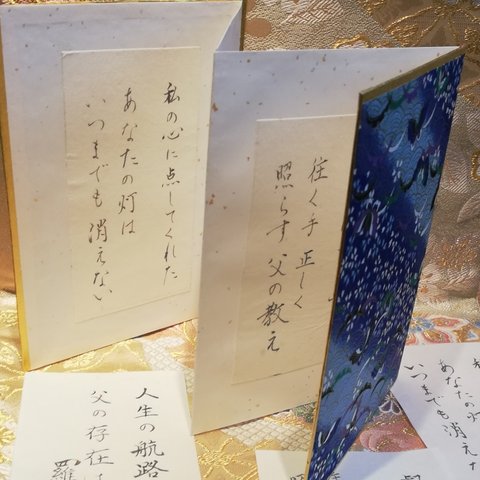 私の心に点してくれた
あなたの灯は
いつまでも消えない
往く手 正しく
照らす 父の教え
人生の航路
父の存在は
羅
あなたの灯
いつまでも消えな